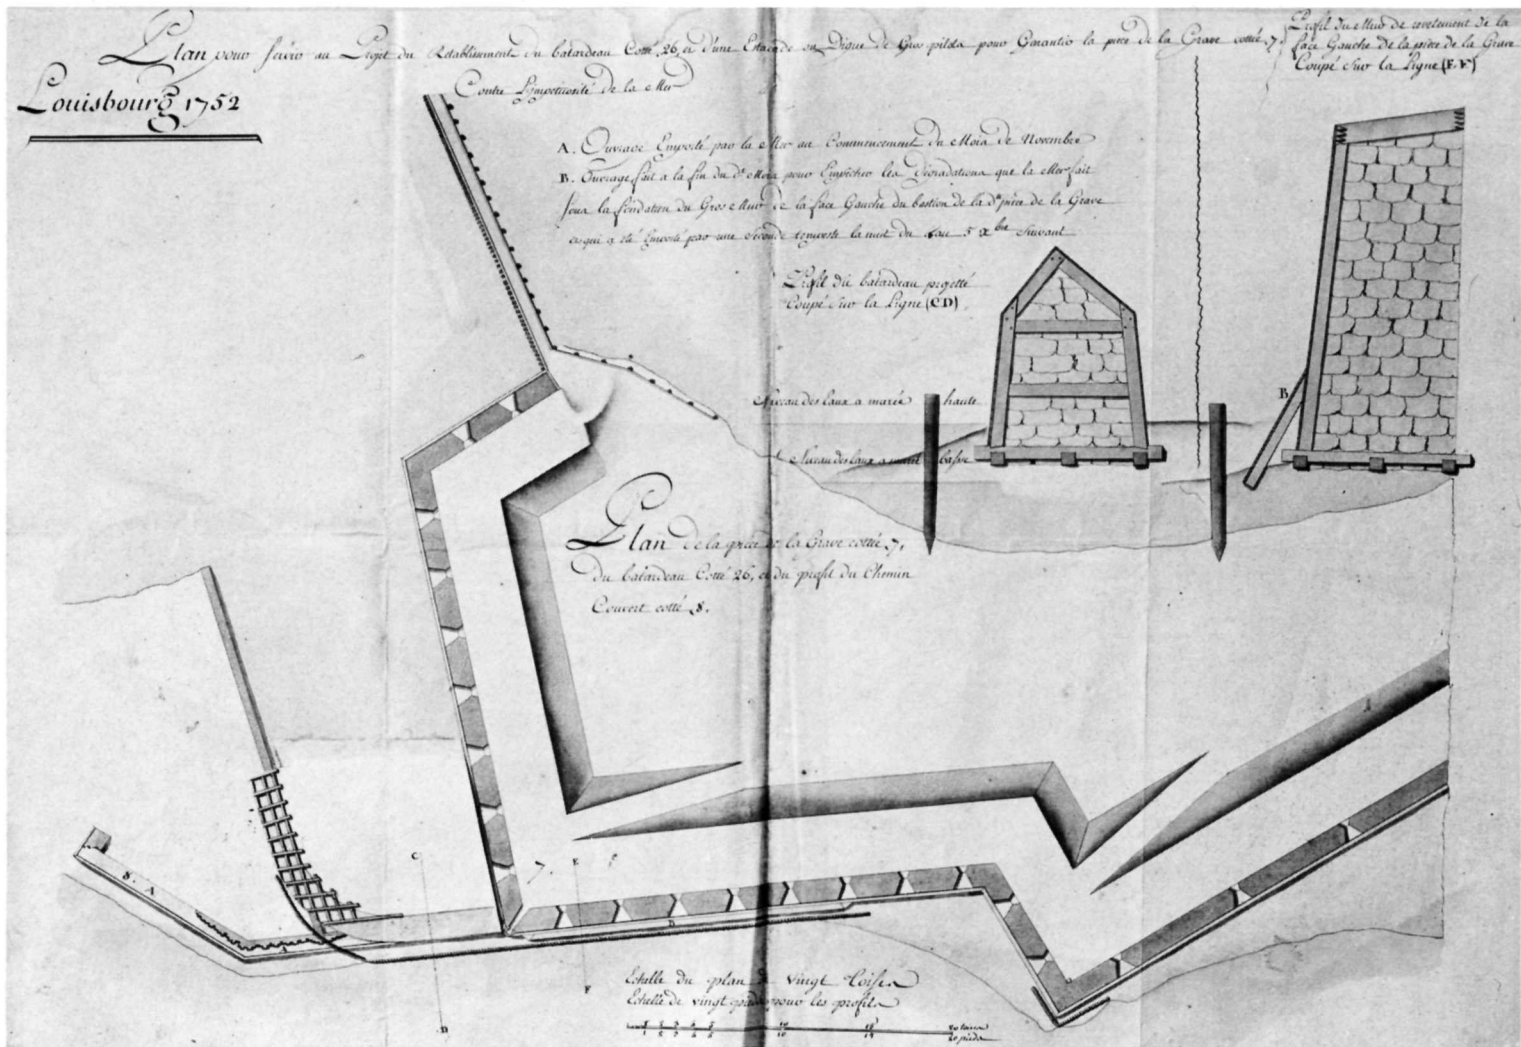 Plan pour servir au Projet du Retablissement du batardeau Cotté 26, et d'une Estacade ou Digue de Gros pilots pour Garantir la piece de la Grave cottée 7.
Contre L'impetuosité de la Mer
Louisbourg 1752
Profil du Mur de revetement de la
face Gauche de la piece de la Grave
Coupé sur la Ligne (E.F)
A. Ouvrage Emporté par la Mer au Commencement du Mois de Novembre
B. Ouvrage fait a la fin du dt Mois pour Empêcher les Dégradations que la Mer fait
sous la fondation du Gros Mur de la face Gauche du bastion de la de piece de la Grave
et qui a été Emporté par une seconde tempeste la nuit du 4 au 5 xbre Suivant
Profil du batardeau projetté
Coupé sur la Ligne (CD)
Niveau des Eaux a marée haute
Niveau des Eaux a marée basse
B
Plan de la piece de la Grave cottée 7,
du batardeau Cotté 26, et du profil du Chemin
Couvert cotté 8.
8. A
A
C
D
7.
E
F
B
Echelle du plan de vingt Toises
Echelle de vingt pieds pour les profils
1 2 3 4 5 10 15 20 toises
1 2 3 4 5 10 15 20 pieds